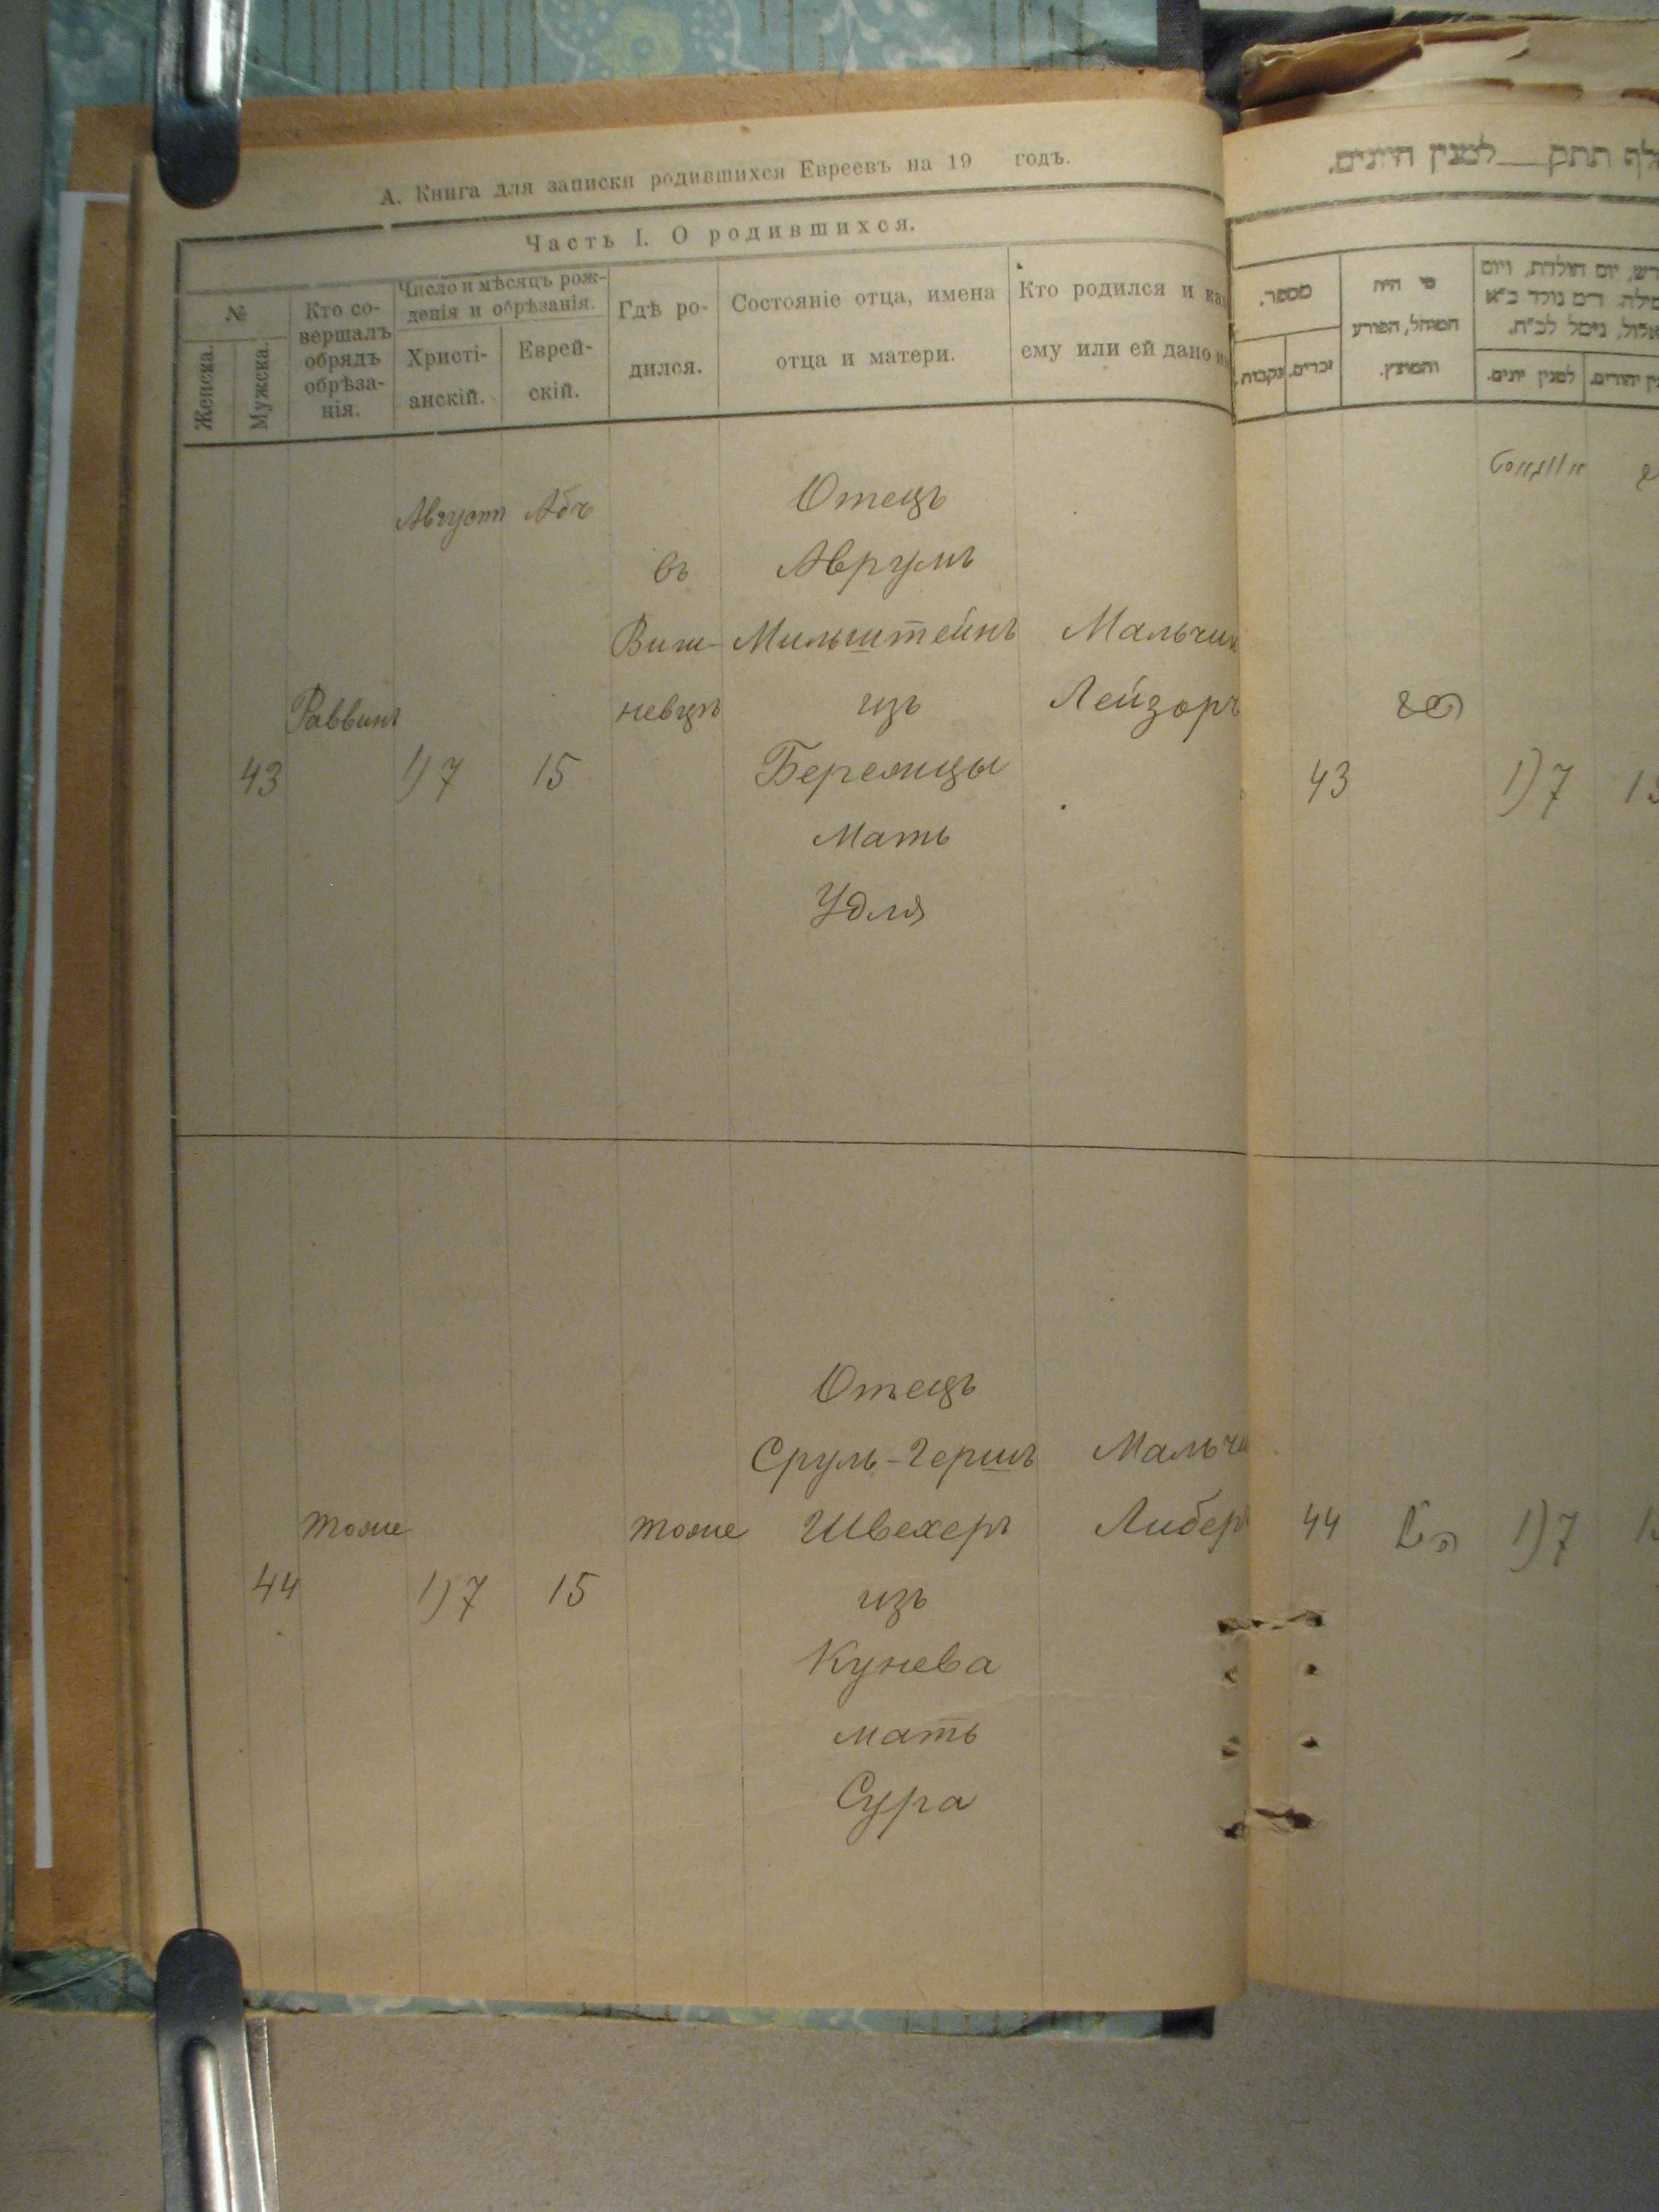 А. Книга для записки родившихся Евреевъ на 19 годъ.
Часть I. О родившихся.
№
Женска.
Мужска.
Кто со-
вершалъ
обрядъ
обрѣза-
нія.
Число и мѣсяцъ рож-
денія и обрѣзанія.
Христі-
анскій.
Еврей-
скій.
Гдѣ ро-
дился.
Состояніе отца, имена
отца и матери.
Кто родился и ка
ему или ей дано
43
Раввинъ
Августъ
1) 7
Абъ
15
въ
Виш-
невцѣ
Отецъ
Аврумъ
Мильштейнъ
изъ
Бережцы
Мать
Удля
Мальчик
Лейзоръ
44
тоже
1) 7
15
тоже
Отецъ
Сруль-Гершъ
Швехеръ
изъ
Кунева
мать
Сура
Мальчи
Либеръ
לף תתק למנין היונים.
מספר.
זכרים.
נקבות.
מי היה
המוהל, הפורע
והמוצץ.
למנין יונים.
43
1) 7
44
1) 7